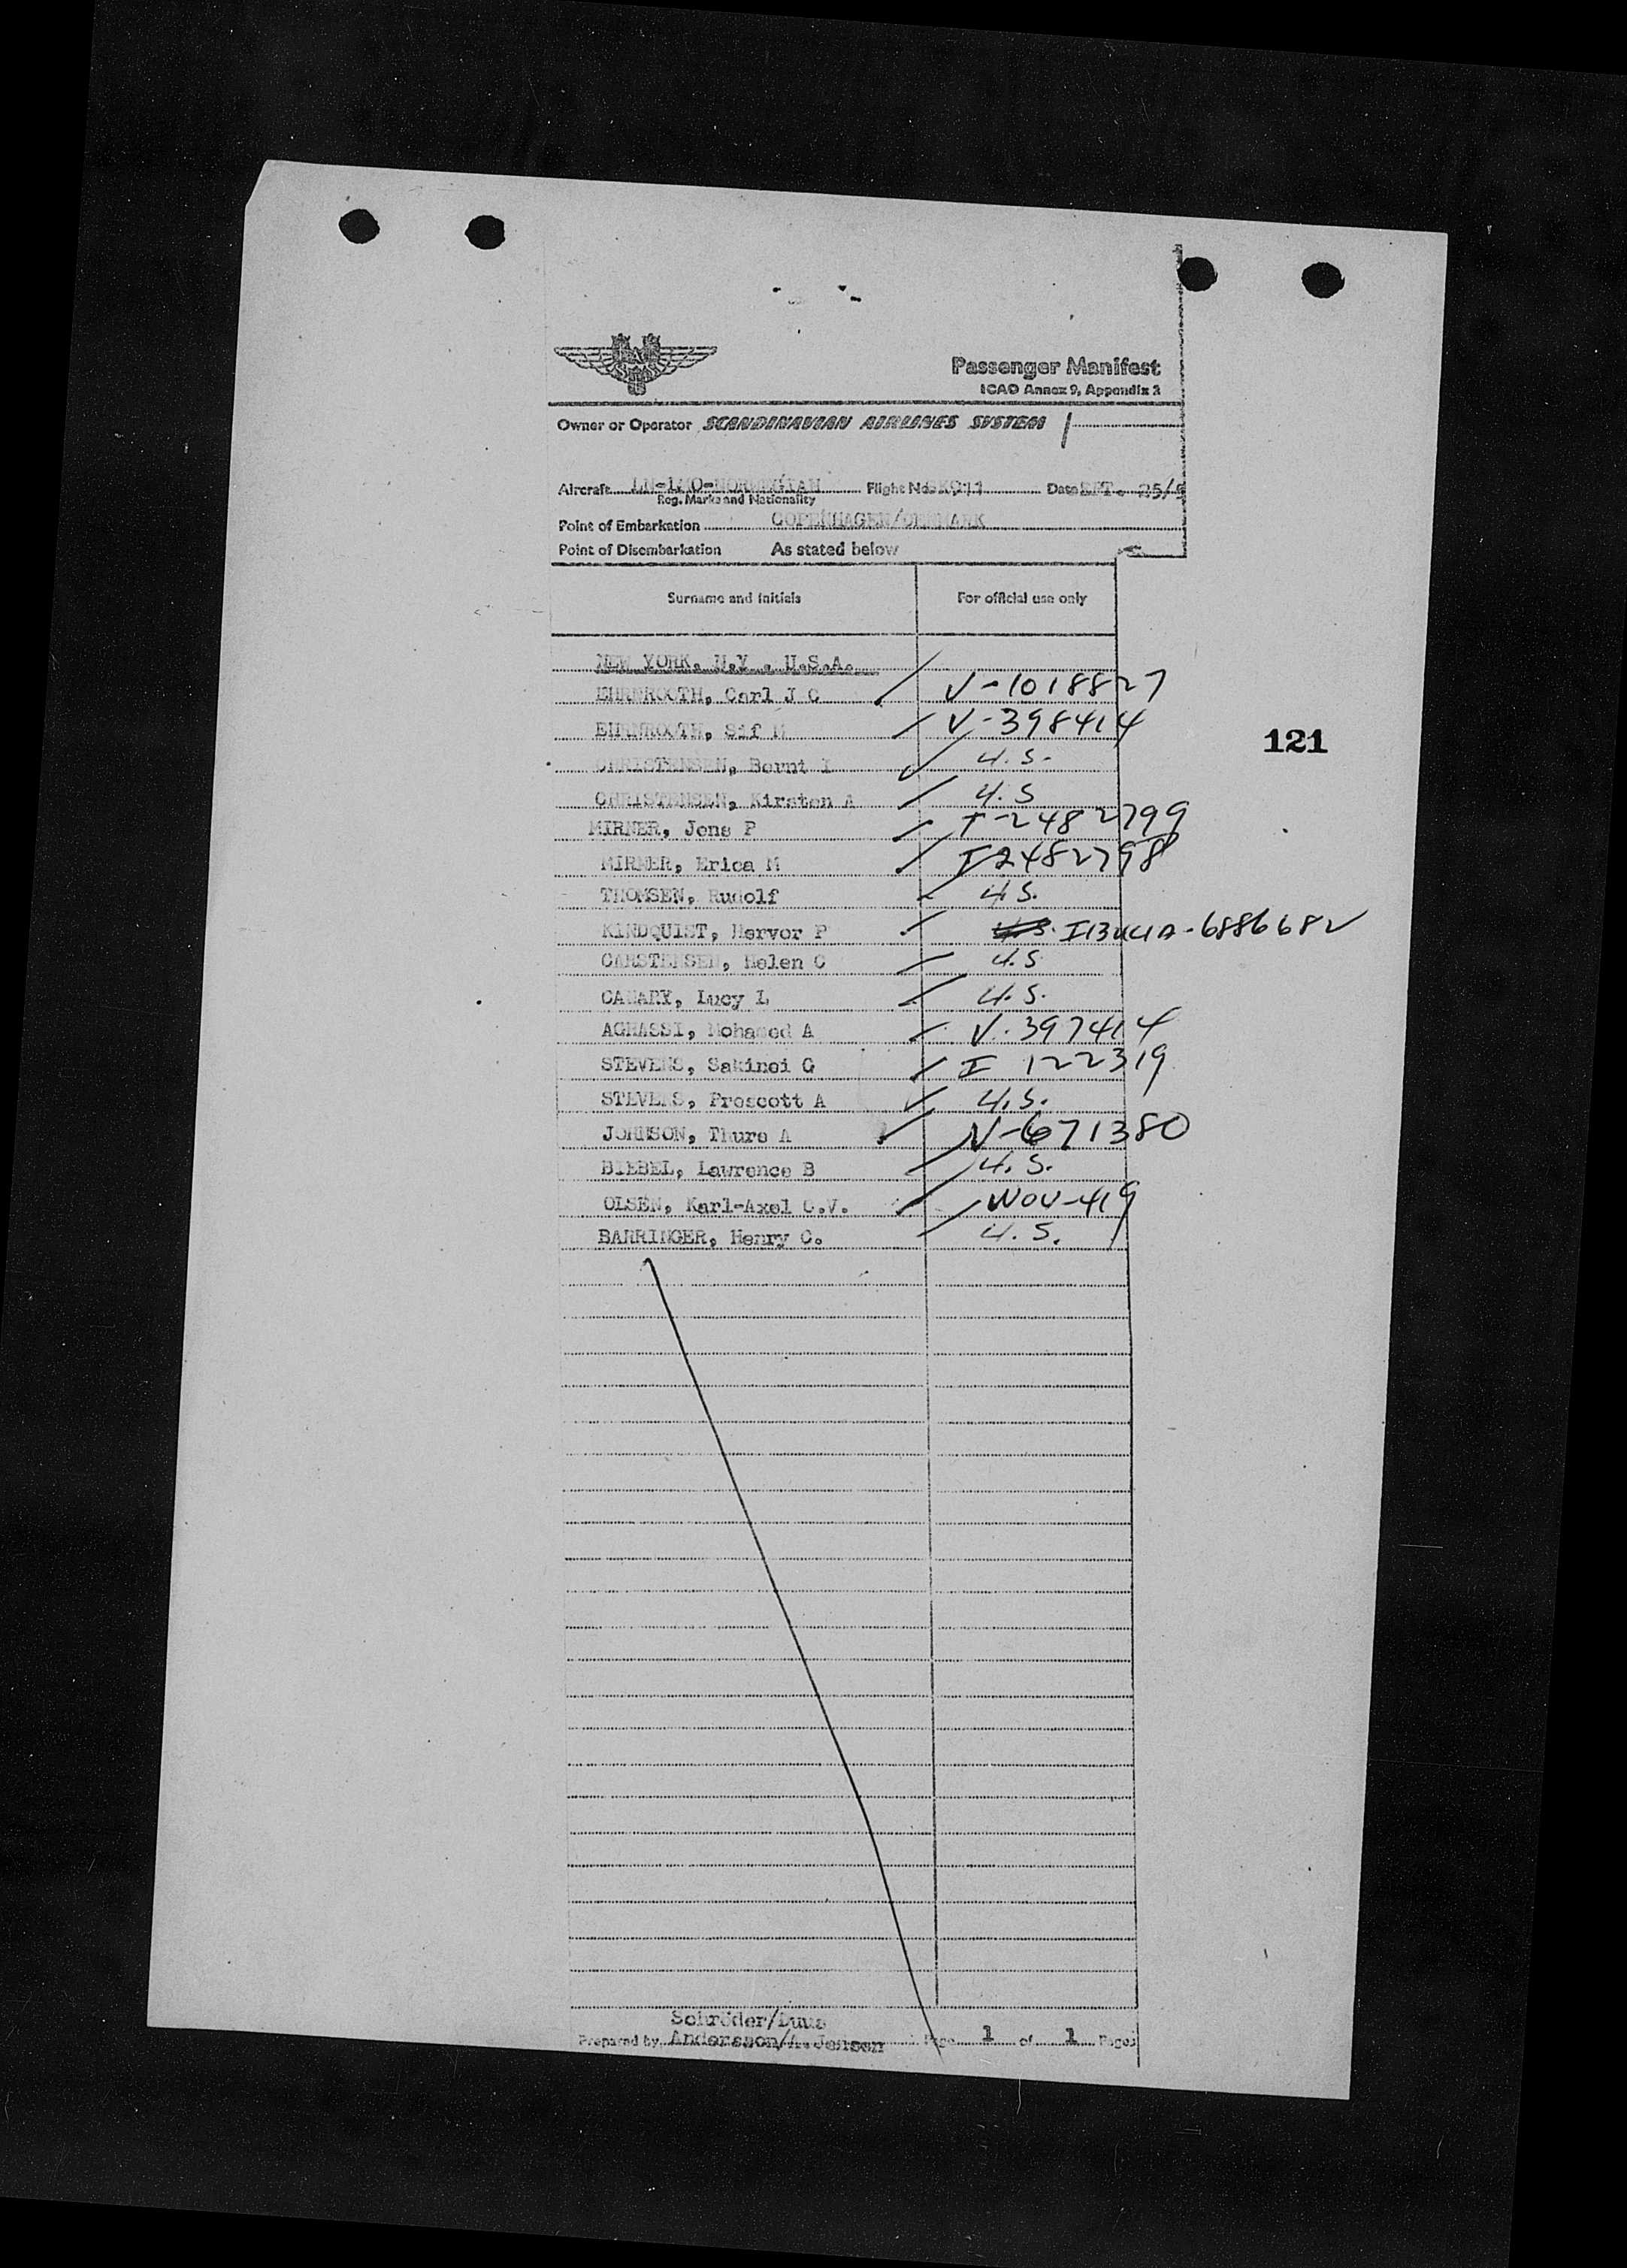 Passenger Manifest
ICAO Annex 9, Appendix 2
Owner or Operator SCANDINAVIAN AIRLINES SYSTEM
Aircraft NORWEGIAN Flight No. Date 25/9
Reg. Marks and Nationality
Point of Embarkation COPENHAGEN/DENMARK
Point of Disembarkation As stated below
Surname and initials For official use only
NEW YORK, N.Y., U.S.A.
EHRNROOTH, Carl J C V-1018827
EHRNROOTH, Sif M V-398414
121
CHRISTENSEN, Bernt I U.S.
CHRISTENSEN, Kirsten A U.S
MIRNER, Jens P I-2482799
MIRNER, Erica M I2482798
THOMSEN, Rudolf U.S.
KINDQUIST, Hervor P 6886682
CARSTENSEN, Helen C U.S
CANARY, Lucy L U.S.
AGHASSI, Mohamed A V-397414
STEVENS, Sakinei G I 122319
STEVENS, Prescott A U.S.
JOHNSON, Thure A V-671380
BIEBEL, Lawrence B U.S.
OLSEN, Karl-Axel C.V. NOV-419
BARRINGER, Henry C. U.S.
Schröder/Duus
Prepared by Andersson/A. Jensen Page 1 of 1 Pages